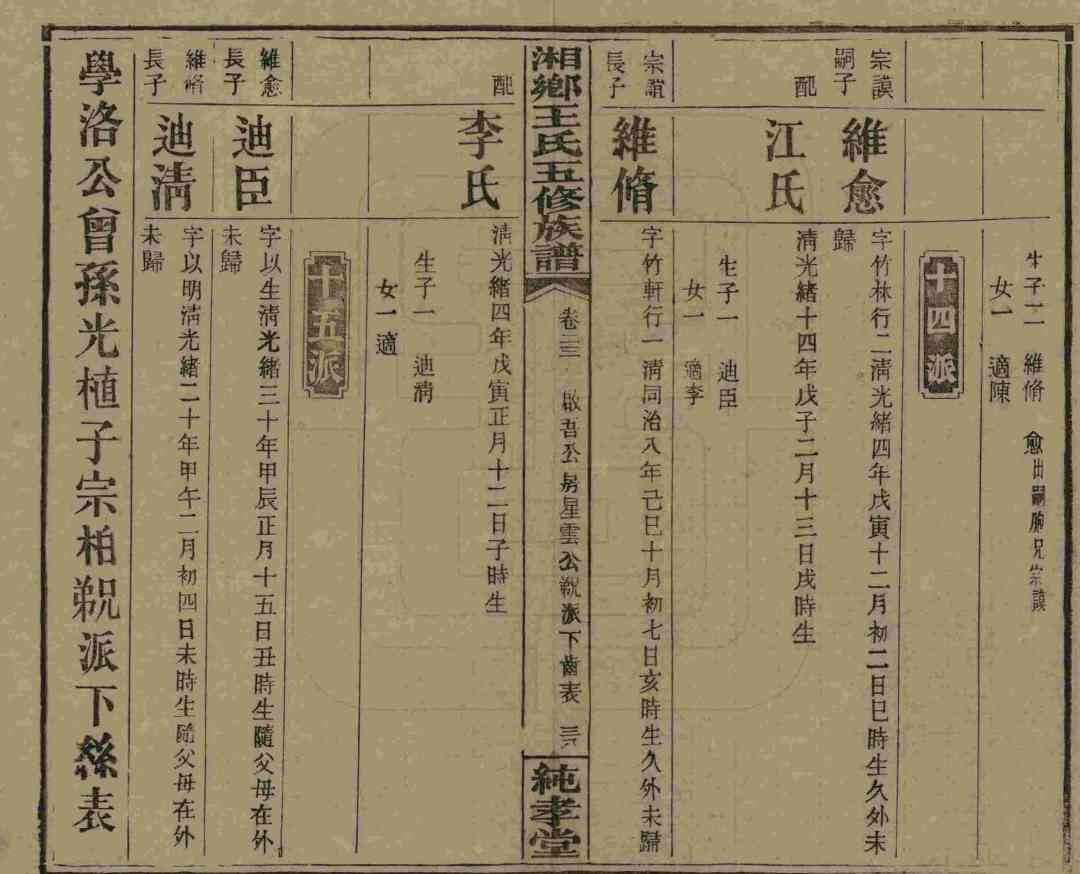 生子二 維脩 愈出嗣胞兄宗謨
女一 適陳
十四派
宗謨
嗣子
維愈
字竹林行二淸光緒四年戊寅十二月初二日巳時生久外未
歸
配
江氏
淸光緒十四年戊子二月十三日戌時生
生子一 迪臣
女一 適李
宗誼
長子
維脩
字竹軒行一淸同治八年己巳十月初七日亥時生久外未歸
湘鄉王氏五修族譜
卷三 啟吾公房星雲公派下齒表
純孝堂
配
李氏
淸光緒四年戊寅正月十二日子時生
生子一 迪淸
女一適
十五派
維愈
長子
迪臣
字以生淸光緒三十年甲辰正月十五日丑時生隨父母在外
未歸
維脩
長子
迪淸
字以明淸光緒二十年甲午二月初四日未時生隨父母在外
未歸
學洛公曾孫光植子宗柏派下絲表